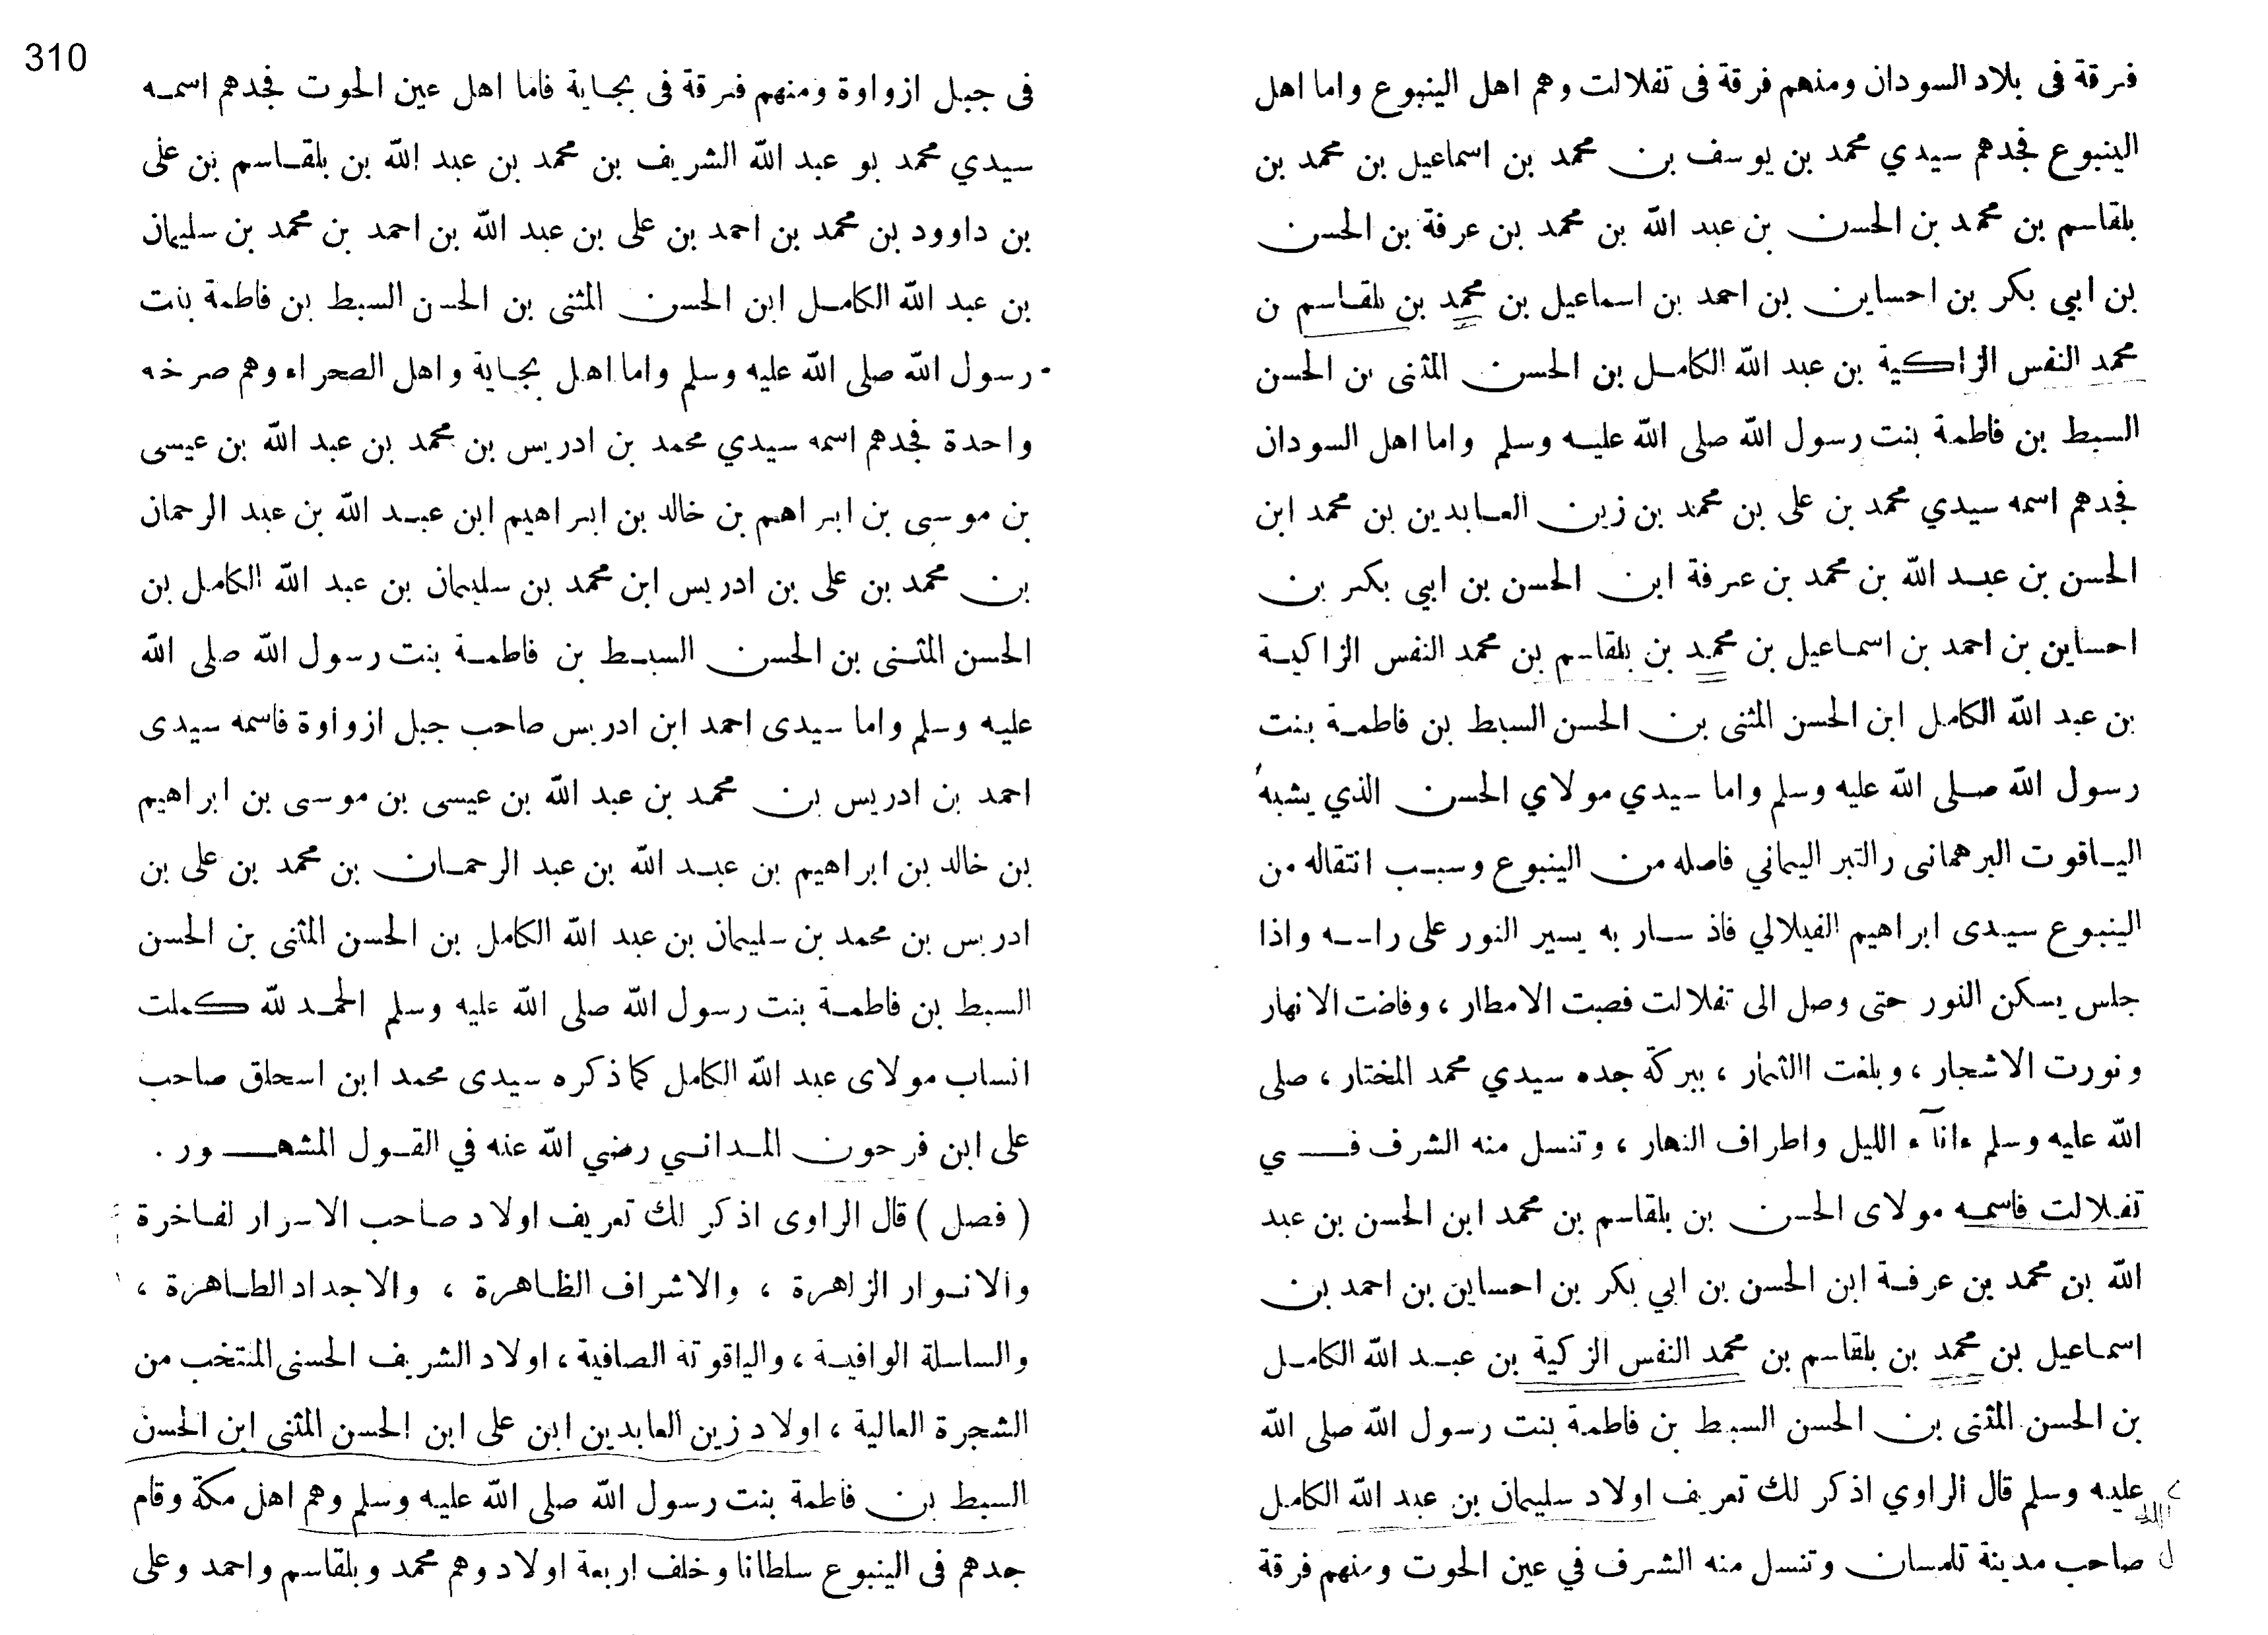 310
فرقة فى بلاد السودان ومنهم فرقة فى تفلالت وهم اهل الينبوع واما اهل
الينبوع فجدهم سيدي محمد بن يوسف بن محمد بن اسماعيل بن محمد بن
بلقاسم بن محمد بن الحسن بن عبد الله بن محمد بن عرفة بن الحسن
بن ابي بكر بن احساين بن احمد بن اسماعيل بن محمد بن بلقاسم ن
محمد النفس الزاكية بن عبد الله الكامل بن الحسن المثنى بن الحسن
السبط بن فاطمة بنت رسول الله صلى الله عليه وسلم واما اهل السودان
فجدهم اسمه سيدي محمد بن على بن محمد بن زين العابدين بن محمد ابن
الحسن بن عبد الله بن محمد بن عرفة ابن الحسن بن ابي بكر بن
احساين بن احمد بن اسماعيل بن محمد بن بلقاسم بن محمد النفس الزاكية
بن عبد الله الكامل ابن الحسن المثنى بن الحسن السبط بن فاطمة بنت
رسول الله صلى الله عليه وسلم واما سيدي مولاي الحسن الذي يشبه
الياقوت البرهمانى والتبر اليماني فاصله من الينبوع وسبب انتقاله من
الينبوع سيدى ابراهيم الفيلالي فاذ سار به يسير النور على راسه واذا
جلس يسكن النور حتى وصل الى تفلالت فصبت الامطار ، وفاضت الانهار
ونورت الاشجار ، وبلغت االثمار ، ببركة جده سيدي محمد المختار ، صلى
الله عليه وسلم ءانآء الليل واطراف النهار ، وتنسل منه الشرف في
تفلالت فاسمه مولاى الحسن بن بلقاسم بن محمد ابن الحسن بن عبد
الله بن محمد بن عرفة ابن الحسن بن ابي بكر بن احساين بن احمد بن
اسماعيل بن محمد بن بلقاسم بن محمد النفس الزكية بن عبد الله الكامل
بن الحسن المثنى بن الحسن السبط بن فاطمة بنت رسول الله صلى الله
عليه وسلم قال الراوي اذكر لك تعريف اولاد سليمان بن عبد الله الكامل
صاحب مدينة تلمسان وتنسل منه الشرف في عين الحوت ومنهم فرقة
فى جبل ازواوة ومنهم فرقة فى بجاية فاما اهل عين الحوت فجدهم اسمه
سيدي محمد بو عبد الله الشريف بن محمد بن عبد الله بن بلقاسم بن على
بن داوود بن محمد بن احمد بن على بن عبد الله بن احمد بن محمد بن سليمان
بن عبد الله الكامل ابن الحسن المثنى بن الحسن السبط بن فاطمة بنت
رسول الله صلى الله عليه وسلم واما اهل بجاية واهل الصحراء وهم صرخه
واحدة فجدهم اسمه سيدي محمد بن ادريس بن محمد بن عبد الله بن عيسى
بن موسى بن ابراهم بن خالد بن ابراهيم ابن عبد الله بن عبد الرحمان
بن محمد بن على بن ادريس ابن محمد بن سليمان بن عبد الله الكامل بن
الحسن المثنى بن الحسن السبط بن فاطمة بنت رسول الله صلى الله
عليه وسلم واما سيدى احمد ابن ادريس صاحب جبل ازواوة فاسمه سيدى
احمد بن ادريس بن محمد بن عبد الله بن عيسى بن موسى بن ابراهيم
بن خالد بن ابراهيم بن عبد الله بن عبد الرحمان بن محمد بن على بن
ادريس بن محمد بن سليمان بن عبد الله الكامل بن الحسن المثنى بن الحسن
السبط بن فاطمة بنت رسول الله صلى الله عليه وسلم الحمد لله كملت
انساب مولاى عبد الله الكامل كما ذكره سيدى محمد ابن اسحاق صاحب
على ابن فرحون المدانى رضي الله عنه في القول المشهور .
( فصل ) قال الراوى اذكر لك تعريف اولاد صاحب الاسرار لفاخرة
والانوار الزاهرة ، والاشراف الظاهرة ، والاجداد الطاهرة ،
والساسلة الوافية ، والياقوتة الصافية ، اولاد الشريف الحسنى المنتخب من
الشجرة العالية ، اولاد زين العابدين ابن على ابن الحسن المثنى ابن الحسن
السبط بن فاطمة بنت رسول الله صلى الله عليه وسلم وهم اهل مكة وقام
جدهم فى الينبوع سلطانا وخلف اربعة اولاد وهم محمد وبلقاسم واحمد وعلى